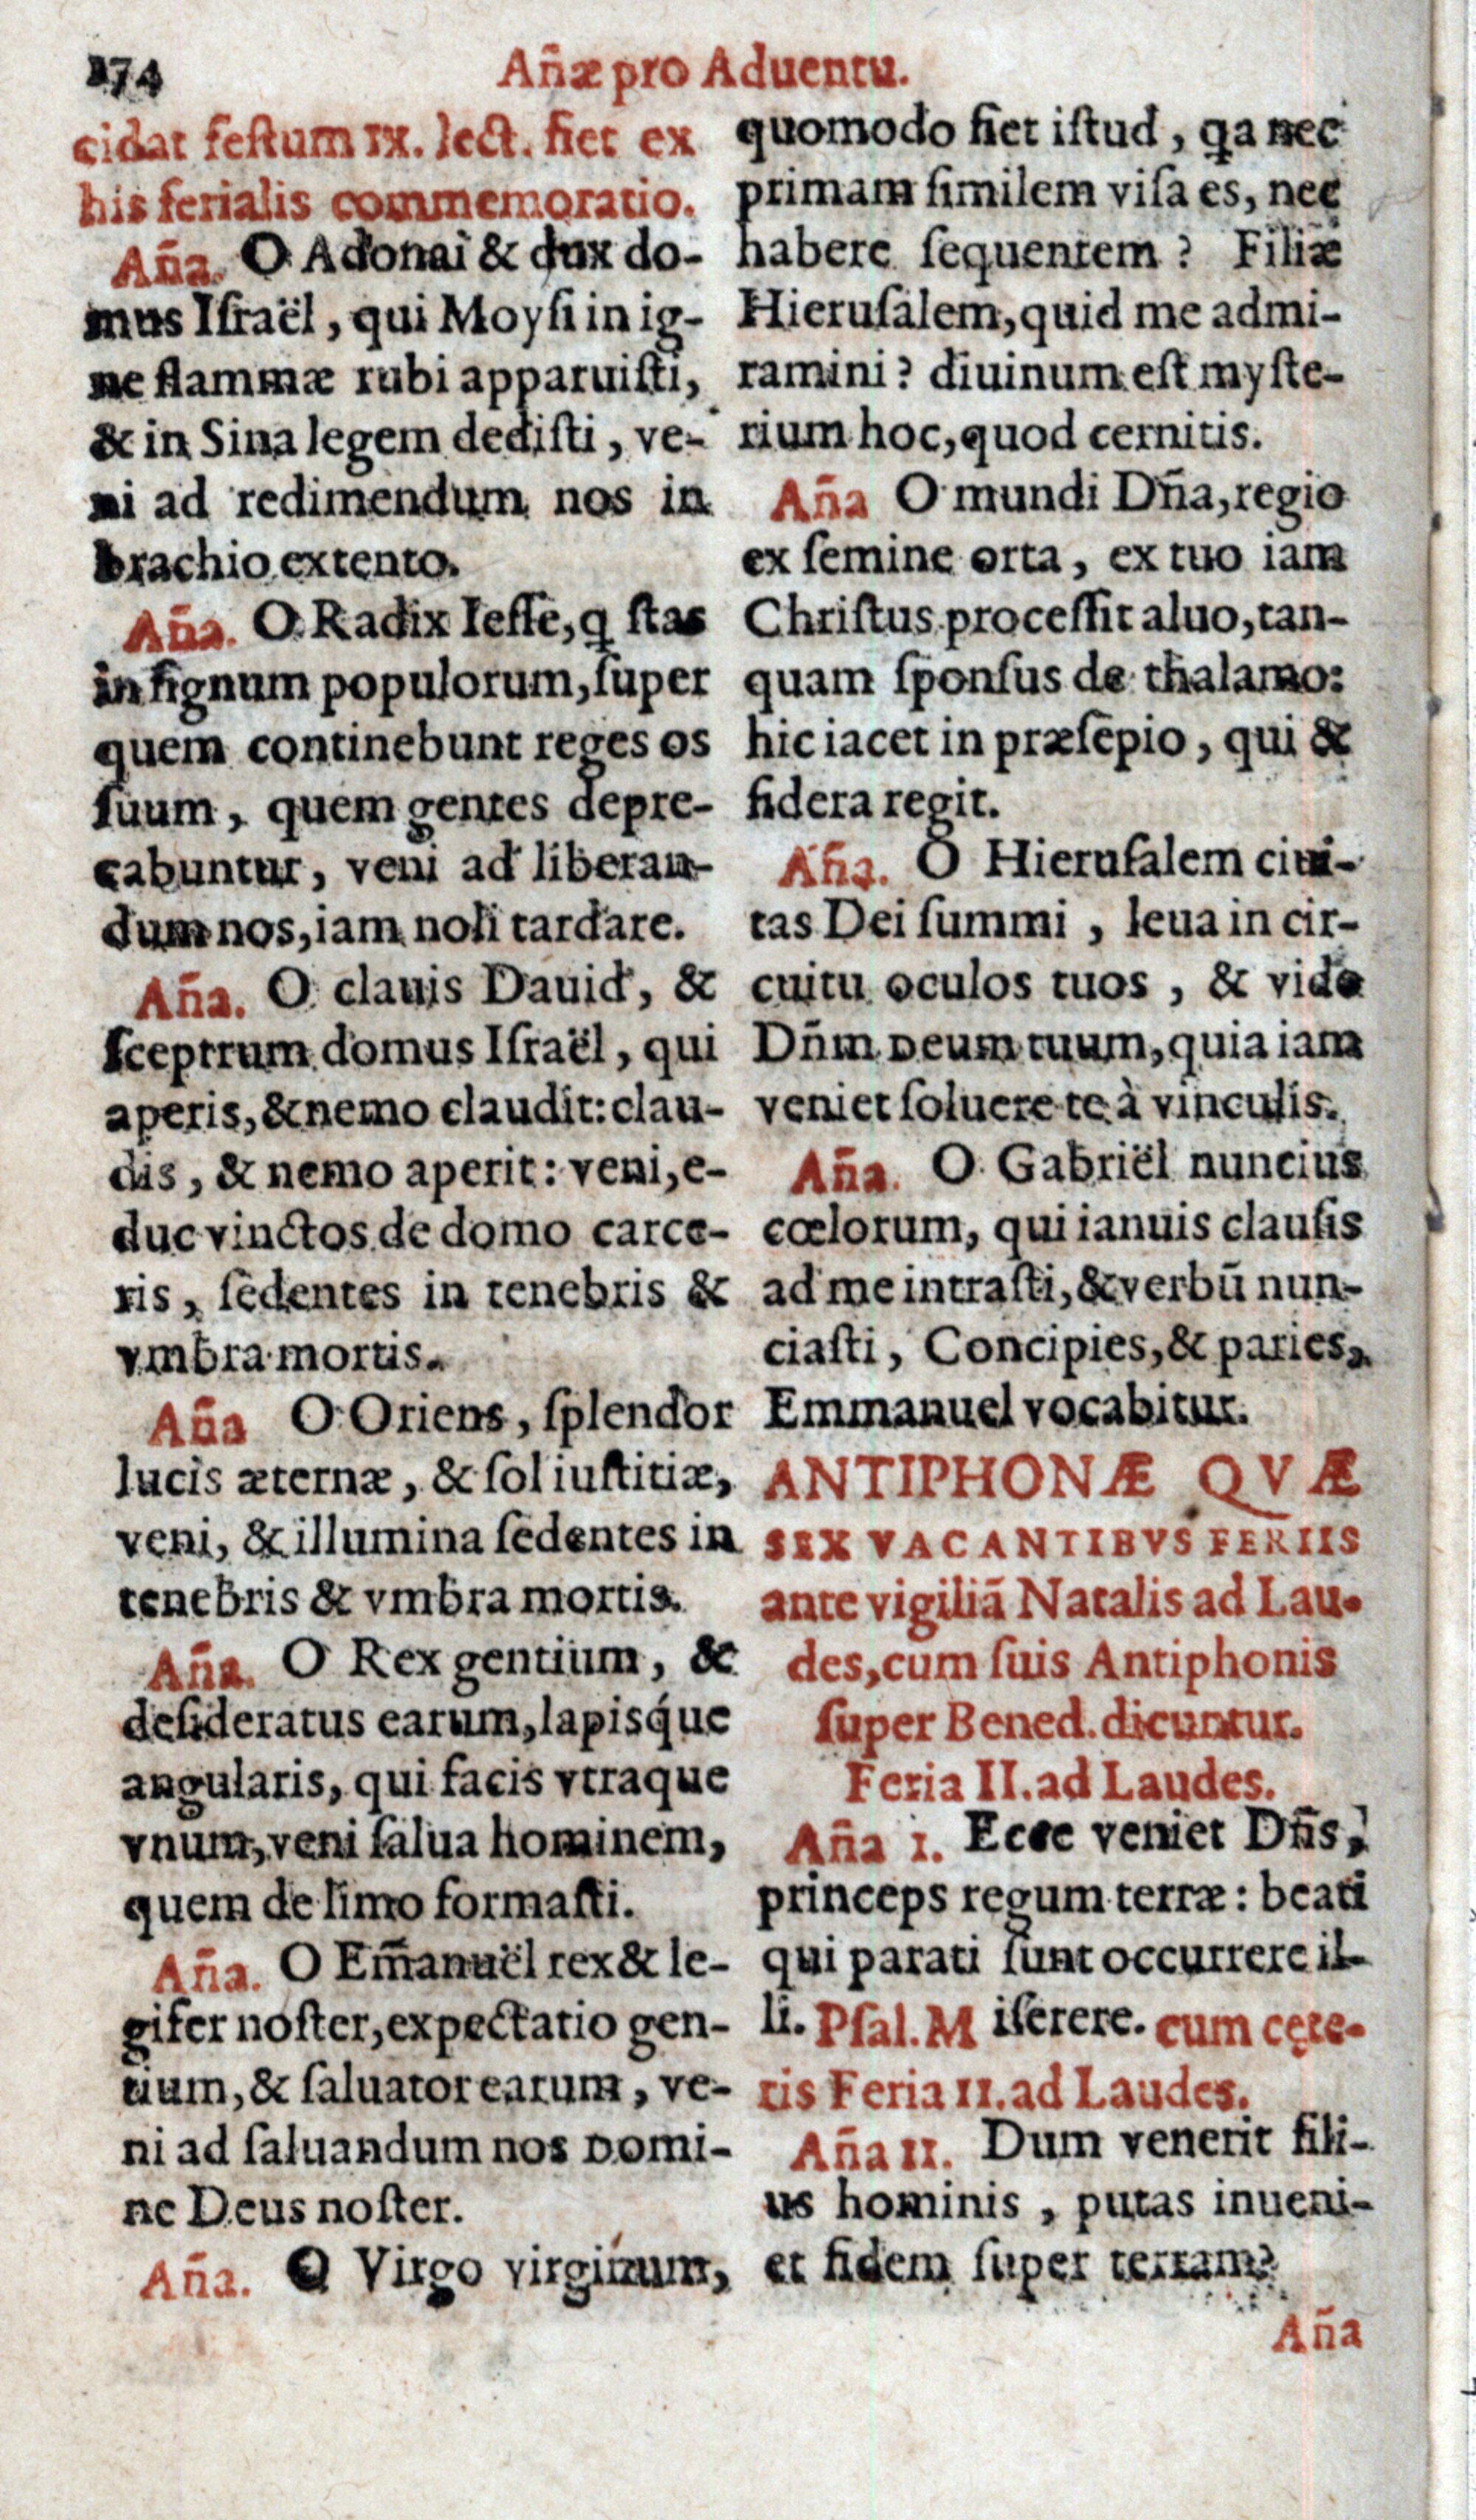 274
Añæ pro Aduentu.
cidat feſtum IX. lect. fiet ex
his ferialis commemoratio.
Aña. O Adonai & dux do-
mus Iſraël, qui Moyſi in ig-
ne flammæ rubi apparuiſti,
& in Sina legem dediſti, ve-
ni ad redimendum nos in
brachio extento.
Aña. O Radix Ieſſe, q ſtas
in ſignum populorum, ſuper
quem continebunt reges os
ſuum, quem gentes depre-
cabuntur, veni ad liberan-
dum nos, iam noli tardare.
Aña. O clauis Dauid, &
ſceptrum domus Iſraël, qui
aperis, & nemo claudit: clau-
dis, & nemo aperit: veni, e-
duc vinctos de domo carce-
ris, ſedentes in tenebris &
vmbra mortis.
Aña O Oriens, ſplendor
lucis æternæ, & ſol iuſtitiæ,
veni, & illumina ſedentes in
tenebris & vmbra mortis.
Aña. O Rex gentium, &
deſideratus earum, lapisq́ue
angularis, qui facis vtraque
vnum, veni ſalua hominem,
quem de limo formaſti.
Aña. O Em̃anuël rex & le-
gifer noſter, expectatio gen-
tium, & ſaluator earum, ve-
ni ad ſaluandum nos Domi-
ne Deus noſter.
Aña. O Virgo virginum,
quomodo fiet iſtud, qa nec
primam ſimilem viſa es, nec
habere ſequentem? Filiæ
Hieruſalem, quid me admi-
ramini? diuinum eſt myſte-
rium hoc, quod cernitis.
Aña O mundi Dña, regio
ex ſemine orta, ex tuo iam
Chriſtus proceſſit aluo, tan-
quam ſponſus de thalamo:
hic iacet in præſepio, qui &
ſidera regit.
Aña. O Hieruſalem ciui-
tas Dei ſummi, leua in cir-
cuitu oculos tuos, & vide
Dñm Deum tuum, quia iam
veniet ſoluere te à vinculis.
Aña. O Gabriël nuncius
cœlorum, qui ianuis clauſis
ad me intraſti, & verbū nun-
ciaſti, Concipies, & paries,
Emmanuel vocabitur.
ANTIPHONÆ QVÆ
SEX VACANTIBVS FERIIS
ante vigiliā Natalis ad Lau-
des, cum ſuis Antiphonis
ſuper Bened. dicuntur.
Feria II. ad Laudes.
Aña I. Ecce veniet Dñs,
princeps regum terræ: beati
qui parati ſunt occurrere il-
li. Pſal. Miſerere. cum cęte-
ris Feria II. ad Laudes.
Aña II. Dum venerit fili-
us hominis, putas inueni-
et fidem ſuper terram?
Aña